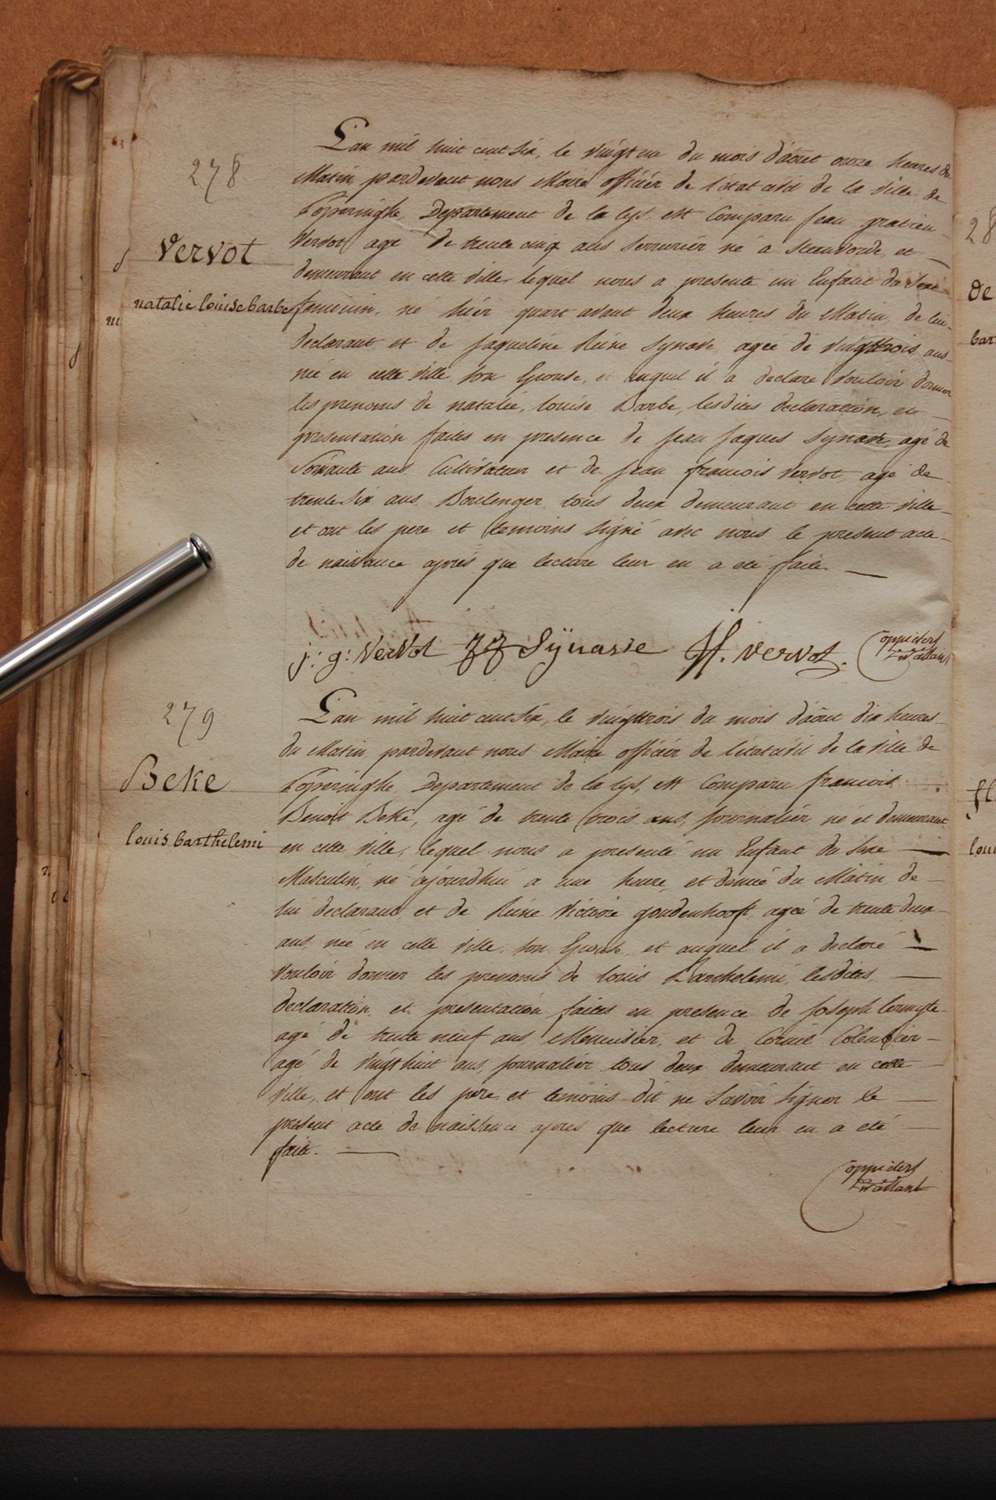 278
Vervot
natalie louise barbe
L'an mil huit cent six, le vingt un du mois d'aôut onze heures du
Matin pardevant nous Maire officiér de l'état civil de la ville de
Poperinghe, Departement de la Lys, est Comparu Jean gratien
Vervot, agé de trente cinq ans Serrurier né à Steenvorde, et
demeurant en cette ville, lequel nous a presenté un Enfant du Sexe
feminin, né hièr quart avant deux heures du Matin, de lui
declarant et de Jaqueline Reine Synave, agée de vingt trois ans
née en cette ville, son Epouse, et auquel il a declaré vouloir donner
les prenoms de natalie, louise Barbe, lesdites declaration, et
presentation faites en presence de Jean Jaques Synave, agé de
Soixante ans Cultivateur et de Jean francois Vervot agé de
trente Six ans Boulenger, tous deux demeurant en cette ville
et ont les pere et temoins signé avec nous le present acte
de naissance aprés que lecture leur en a été faite.
j: g: Vervot JJ Sÿnave jf. vervot.
279
Beke
louis barthelemi
L'an mil huit cent Six, le vingt trois du mois d'aôut dix heures
du Matin pardevant nous Maire officiér de l'état civil de la ville de
Poperinghe Departement de la Lys, est Comparu francois
Benoit Beke, agé de trente trois ans, journaliér né et demeurant
en cette ville, lequel nous a presenté un Enfant du Sexe
Masculin, né ajourdhui a une heure, et demie du Matin de
lui declarant, et de Reine Victoire goudenhooft, agée de trente deux
ans née en cette ville, son Epouse, et auquel il a declaré
vouloir donner les prenoms de louis Barthelemi, lesdites
declaration, et presentation faites en presence de Joseph
agé de trente neuf ans Menuisier, et de Cornil
agé de vingt huit ans, journaliér tous deux demeurant en cette
ville, et ont les pere et temoins dit ne Savoir Signer le
present acte de naissance aprés que lecture leur en a été
faite.